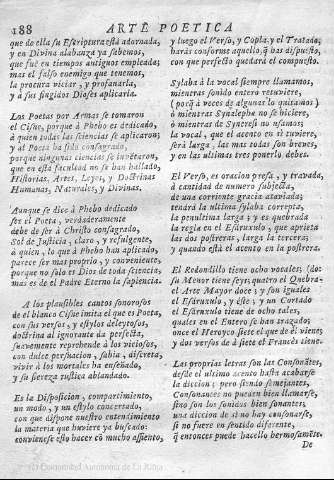 188 ARTE POETICA
que de ella su Escriptura està adornada,
y en Divina alabanza ya sabemos,
que fuè en tiempos antiguos empleada;
mas el falso enemigo que tenemos,
la procura viciar, y profanarla,
y à sus fingidos Dioses aplicarla.
Los Poetas por Armas se tomaron
el Cisne, porque à Phebo es dedicado,
à quien todas las sciencias se aplicaron;
y al Poeta ha sido consagrado,
porque ningunas ciencias se inventaron,
que en esta facultad no se han hallado,
Historias, Artes, Leyes, y Doctrinas
Humanas, Naturales, y Divinas.
Aunque se dice à Phebo dedicado
ser el Poeta, verdaderamente
debe de ser à Christo consagrado,
Sol de Justicia, claro, y refulgente,
à quien, lo que à Phebo han aplicado,
parece ser mas proprio, y conveniente,
porque no solo es Dios de toda sciencia,
mas es de el Padre Eterno la sapiencia.
A los plausibles cantos sonorosos
de el blanco Cisne imita el que es Poeta,
con sus versos, y estylos deleytosos,
doctrina al ignorante da perfecta,
suavemente reprehende à los viciosos,
con dulce persuacion, sabia, discreta,
vivir à los mortales ha enseñado,
y su fiereza rustica ablandado.
Es la Disposicion, compartimiento,
un modo, y un estylo concertado,
con que dispone nuestro entendimiento
la materia que huviere ya buscado:
conviene esto hacer cõ mucho assiento,
y luego el Verso, y Copla, y el Tratado,
haràs conformes aquello q̃ has dispuesto,
con que perfecto quedarà el compuesto.
Sylaba à la vocal siempre llamamos,
mientras sonido entero retuviere,
(porq̃ à voces de algunas lo quitamos)
ò mientras Synalepha no se hiciere,
ò mientras de Syneresi no usamos
la vocal, que el acento en sì tuviere,
serà larga, las mas todas son breves,
y en las ultimas tres ponerlo debes.
El Verso, es oracion presa, y travada,
à cantidad de numero subjecta,
de una corriente gracia ataviada;
tendrà la ultima sylaba correpta,
la penultima larga; y es quebrada
la regla en el Esdruxulo, que aprieta
las dos postreras, larga la tercera;
y quando està el acento en la postrera.
El Redondillo tiene ocho vocales; (dos
su Menor tiene seys; quatro el Quebra-
el Arte Mayor doce; y son iguales
el Esdruxulo, y èste; y un Cortado
el Esdruxulo tiene de ocho tales,
quales en el Entero se han trazado;
once el Heroyco siete el que de èl viene;
y dos versos de à siete el Francès tiene.
Las proprias letras son las Consonãtes,
desde el ultimo acento hasta acabarse
la diccion; pero siendo semejantes,
Consonances no pueden bien llamarse,
sino son los sonidos bien sonantes;
una diccion de sì no hay consonarse,
si no fuere en sentido diferente,
q̃ entonces puede hacello hermosamẽte.
De
(c) Comunidad Autónoma de La Rioja